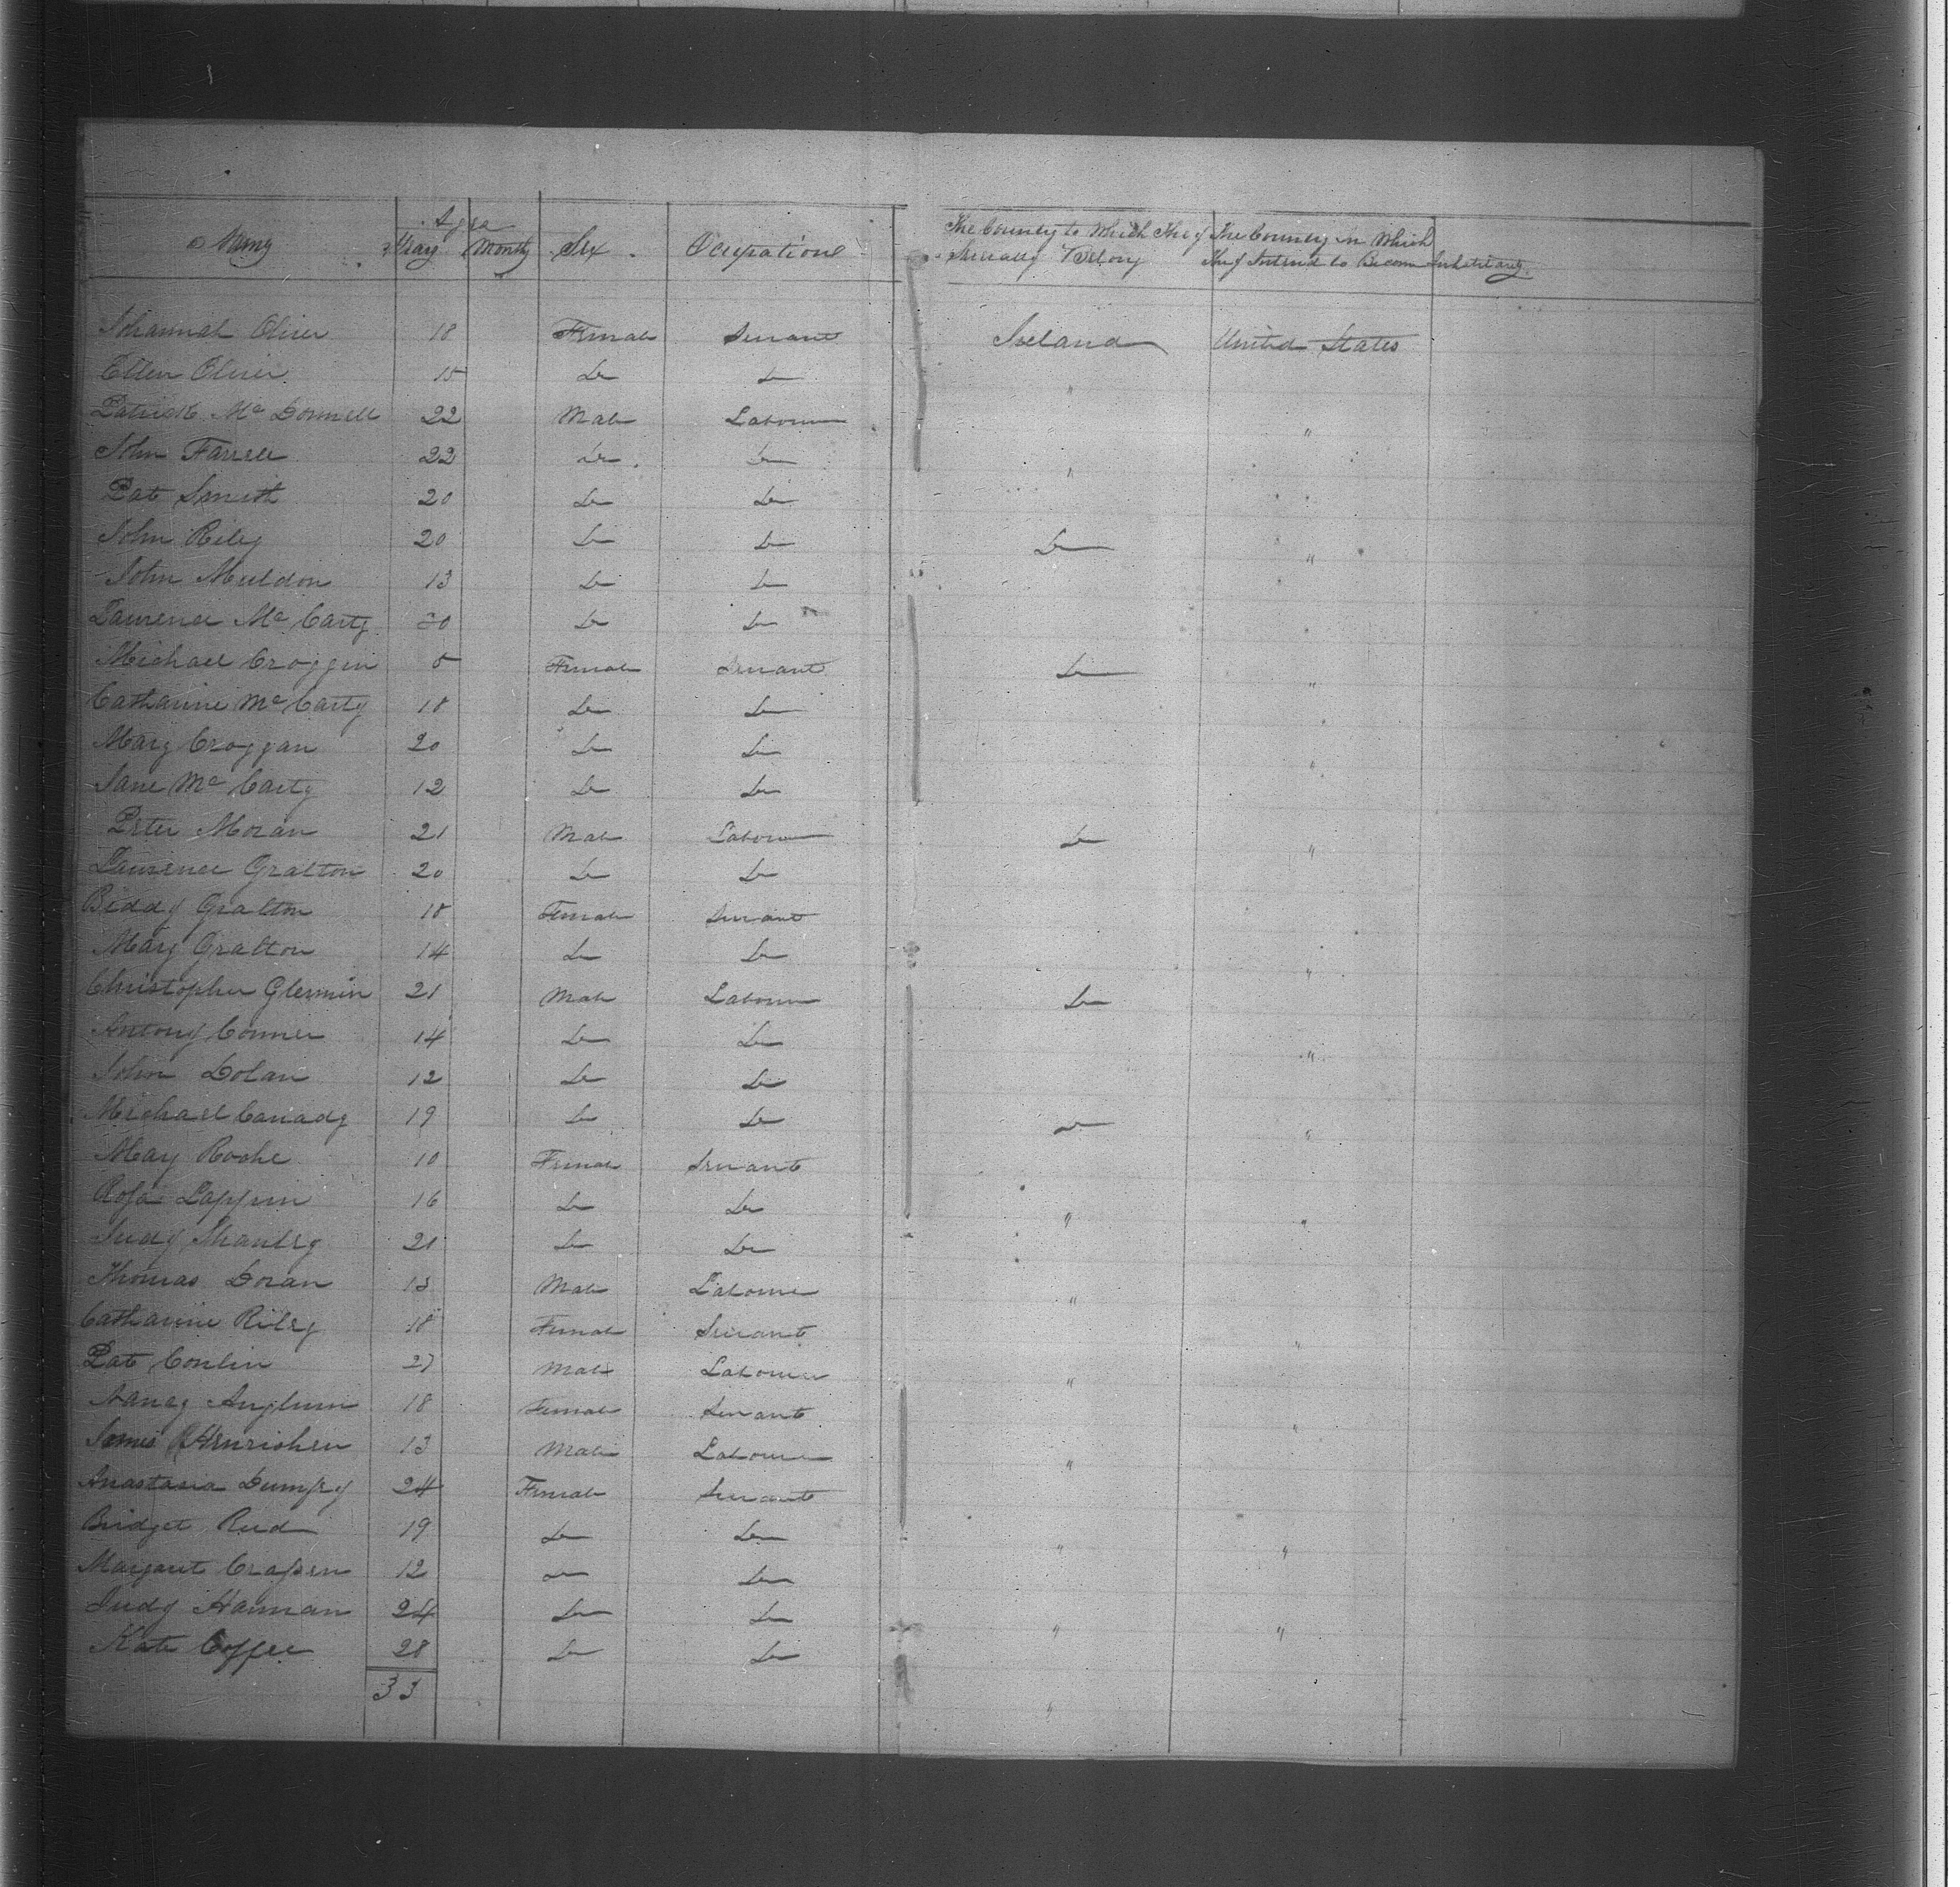 Names Ages Years Months Sex Occupations The County to Which They Severally Belong The Country in Which They Intend to Become Inhabitants
Johannah Oliver 18 Female Servant Ireland United States
Ellen Oliver 15 Do Do "
Patrick Mc Donnell 22 Male Labourer "
John Farrell 22 Do Do "
Pat Smith 20 Do Do "
John Riley 20 Do Do Do "
John Muldon 13 Do Do "
Laurence Mc Carty 20 Do Do "
Michael Croggin 5 Female Servant Do "
Catharine Mc Carty 18 Do Do "
Mary Croggan 20 Do Do "
Jane Mc Carty 12 Do Do
Peter Moran 21 Male Labourer Do "
Laurence Gralton 20 Do Do
Biddy Gralton 18 Female Servant
Mary Gralton 14 Do Do "
Christopher Glermin 21 Male Labourer Do
Antony Conner 14 Do Do "
John Dolan 12 Do Do
Michael Canady 19 Do Do Do "
Mary Roche 10 Female Servant
Rosa Lappin 16 Do Do " "
Judy Shanley 21 Do Do
Thomas Doran 13 Male Labourer "
Catharine Riley 18 Female Servant "
Pat Conlin 27 Male Labourer "
Nancy Anglum 18 Female Servant "
James Henrishen 13 Male Labourer "
Anastasia Dumpey 24 Female Servant
Bridget Reed 19 Do Do " "
Margaret Crassen 12 Do Do
Judy Hannan 24 Do Do " "
Kate Coffee 28 Do Do
33 "